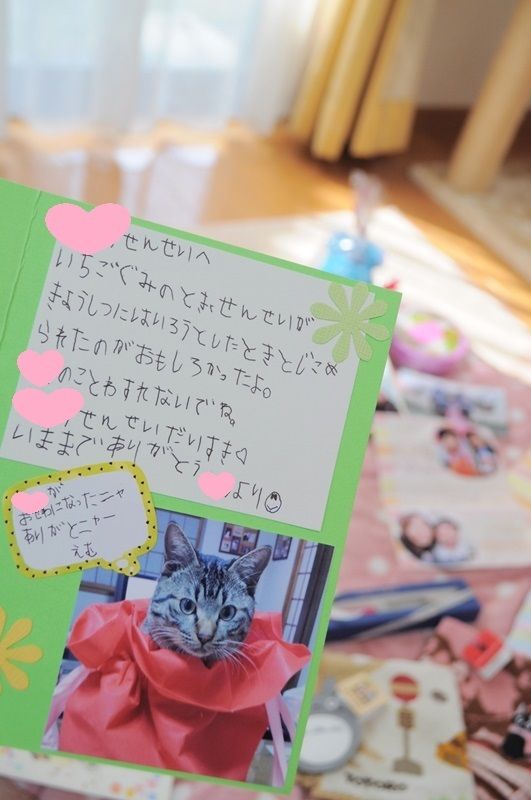 せんせいへ
いちごぐみのとき、せんせいが
きょうしつにはいろうとしたときとじこめ
られたのがおもしろかったよ。
のことわすれないでね。
せんせいだいすき♡
いままでありがとう
より
が
おせわになったニャ
ありがとニャー
えむ